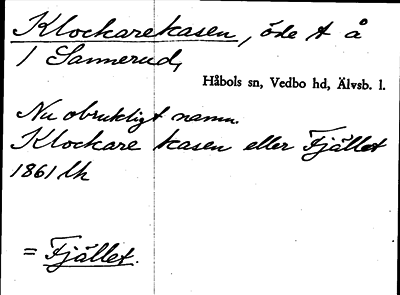 Klockarekasen, öde t å
1 Sannerud,
Håbols sn, Vedbo hd, Älvsb. l.
Nu obrukligt namn.
Klockare kasen eller Fjället
1861 lh
= Fjället.